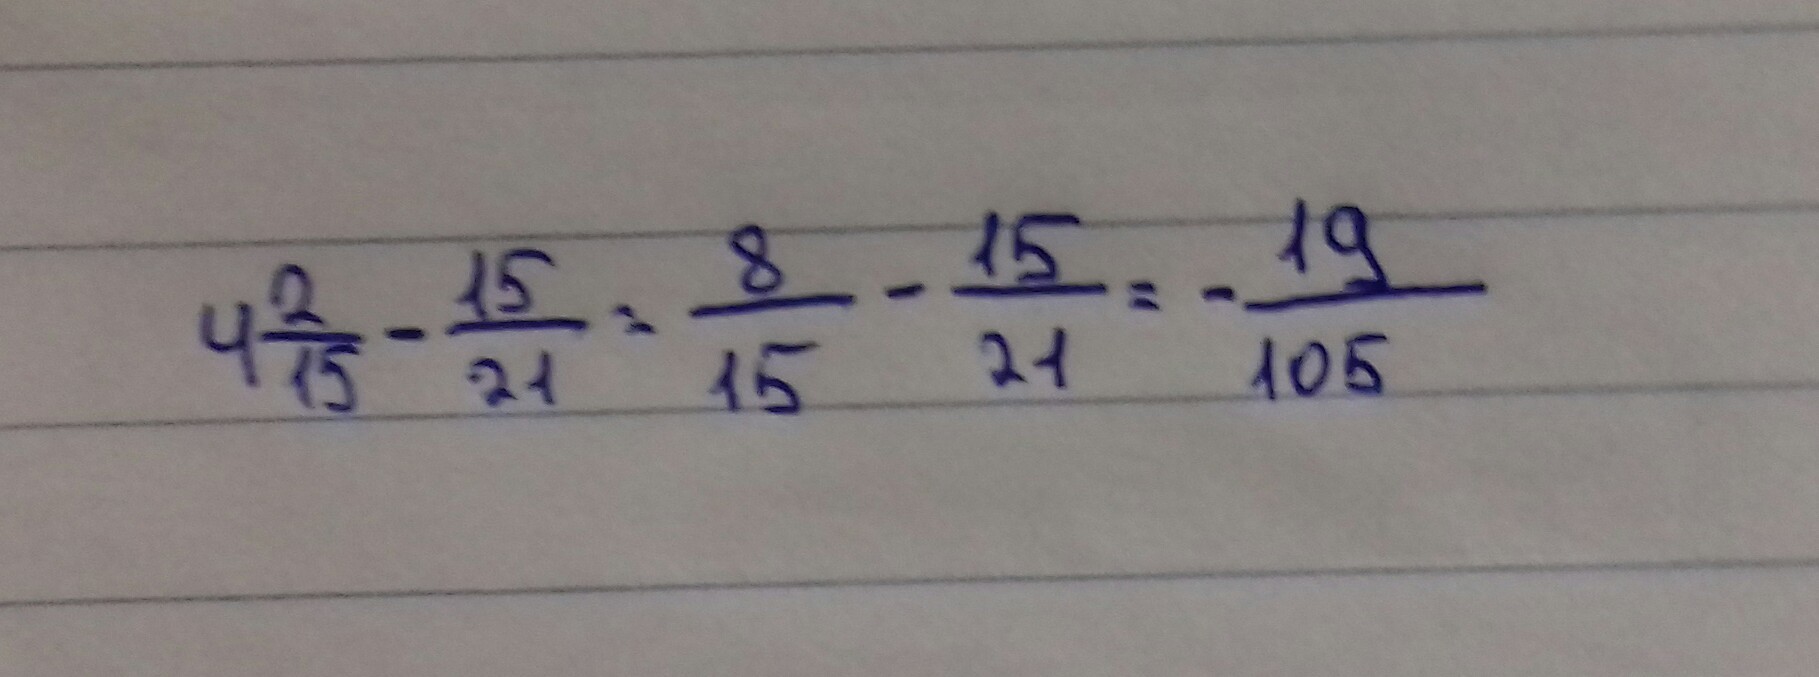 4 2/15 - 15/21 = 8/15 - 15/21 = - 19/105